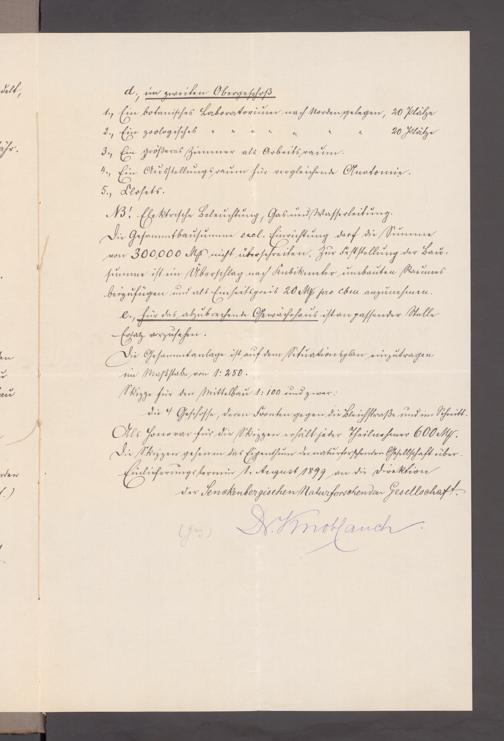 d., im zweiten Obergeschoß
1., Ein botanisches Laboratorium nach Norden gelegen, 20 Plätze
2., Ein zoologisches " " " " " " 20 Plätze
3., Ein größeres Zimmer als Arbeitsraum.
4., Ein Ausstellungsraum für vergleichende Anatomie.
5., Closets.
NB! Elektrische Beleuchtung, Gas und Wasserleitung.
Die Gesammtbausumme excl. Einrichtung darf die Summe
von 300,000 Mk nicht überschreiten. Zur Feststellung der Bau-
summe ist ein Überschlag nach Kubikmeter umbauten Raumes
beizufügen und als Einheitspreis 20 Mk pro cbm anzunehmen.
e., für das abzubrechende Gewächshaus ist an passender Stelle
Ersatz vorzusehen.
Die Gesammtanlage ist auf dem Situationsplan einzutragen
im Maßstabe von 1:250.
Skizze für den Mittelbau 1:100 und zwar:
die 4 Geschosse, deren Fronten gegen die Bleichstraße und im Schnitt.
Als Honorar für die Skizzen erhält jeder Theilnehmer 600 Mk.
Die Skizzen gehen in das Eigenthum der naturforschenden Gesellschaft über.
Einlieferungstermin 1. August 1899 an die Direktion
der Senckenbergischen Naturforschenden Gesellschaft.
(gez.) Dr. Knoblauch.